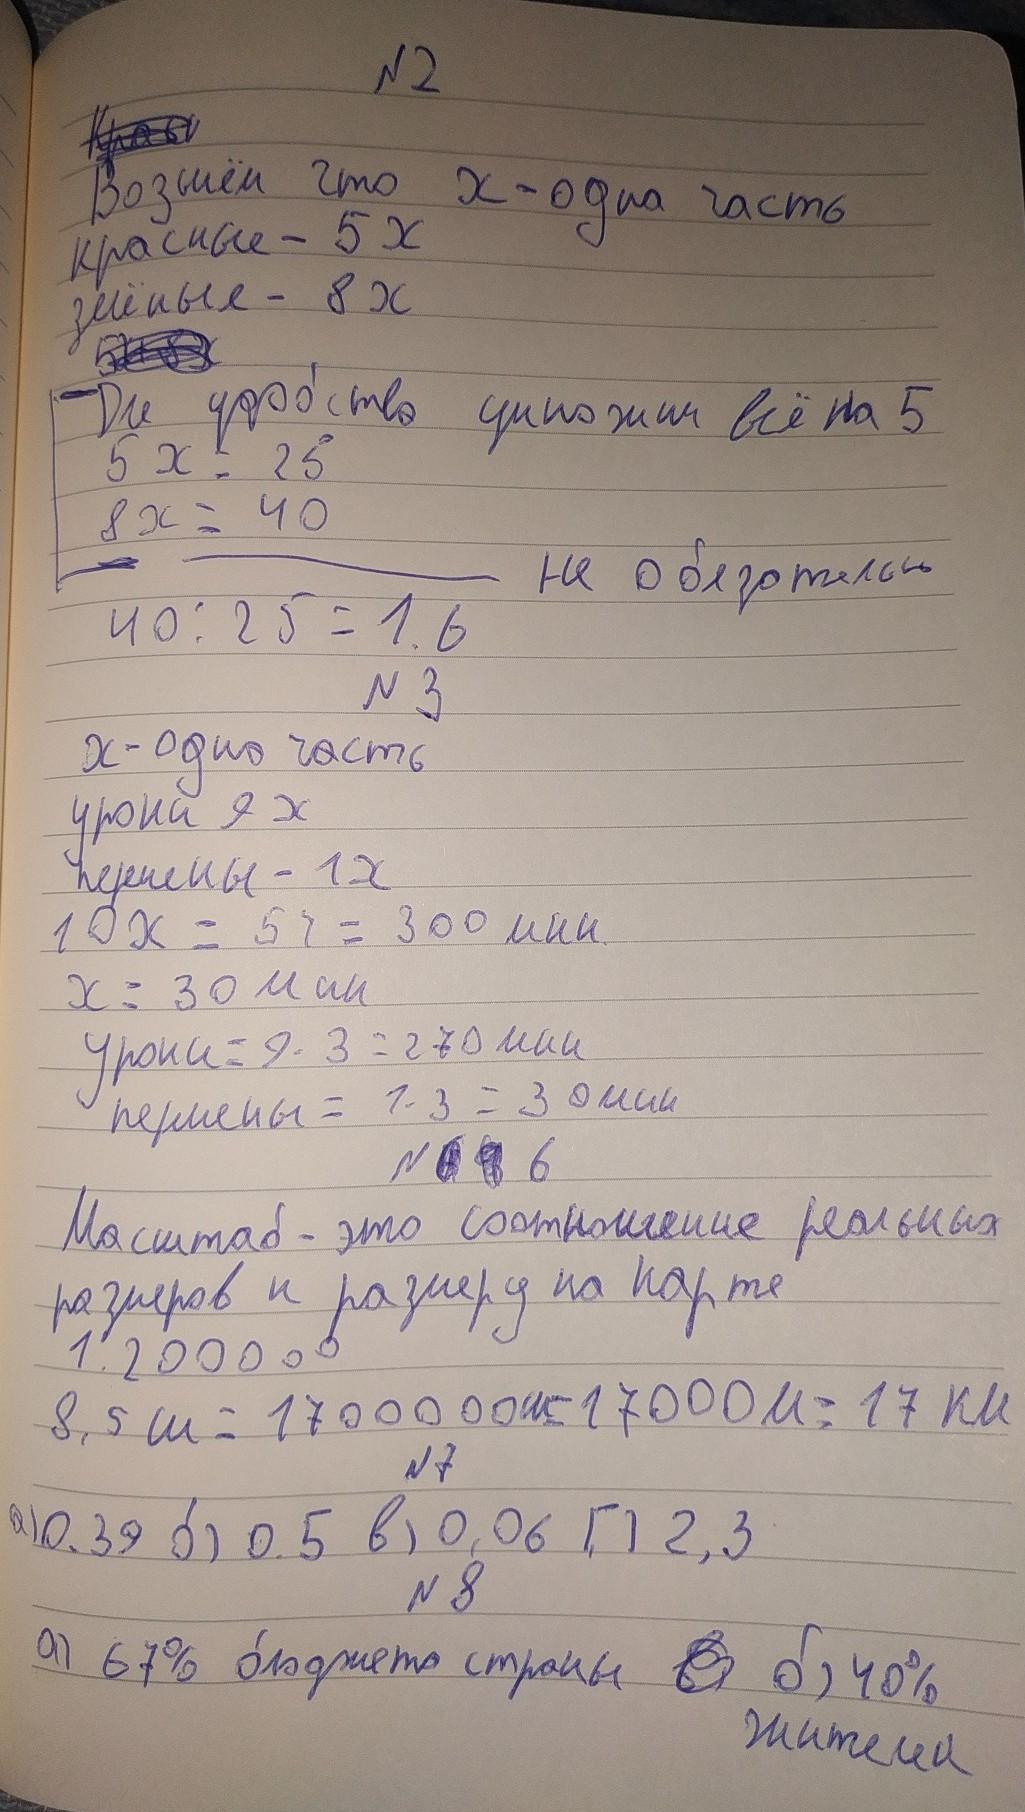 N2
Возьмём что x - одна часть
красные - 5x
зелёные - 8x
Для удобства умножим всё на 5
5x = 25
8x = 40
не обязательно
40 : 25 = 1.6
N3
x - одна часть
уроки 9x
перемены - 1x
10x = 5ч = 300 мин
x = 30 мин
Уроки = 9 · 3 = 270 мин
перемены = 1 · 3 = 30 мин
N 6
Масштаб - это соотношение реальных
размеров к размеру на карте
1:200000
8,5 см = 1700000 см = 17000 м = 17 км
N7
а) 0.39 б) 0.5 в) 0,06 Г) 2,3
N8
а) 67% бюджета страны б) 40%
жителей